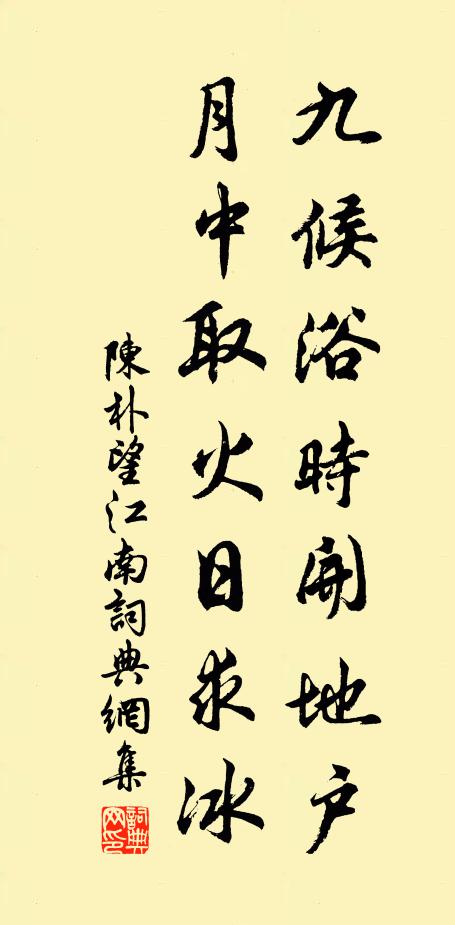 九候浴時開地户
月中取火日求冰
陳朴望江南詞典網集
詞典網印